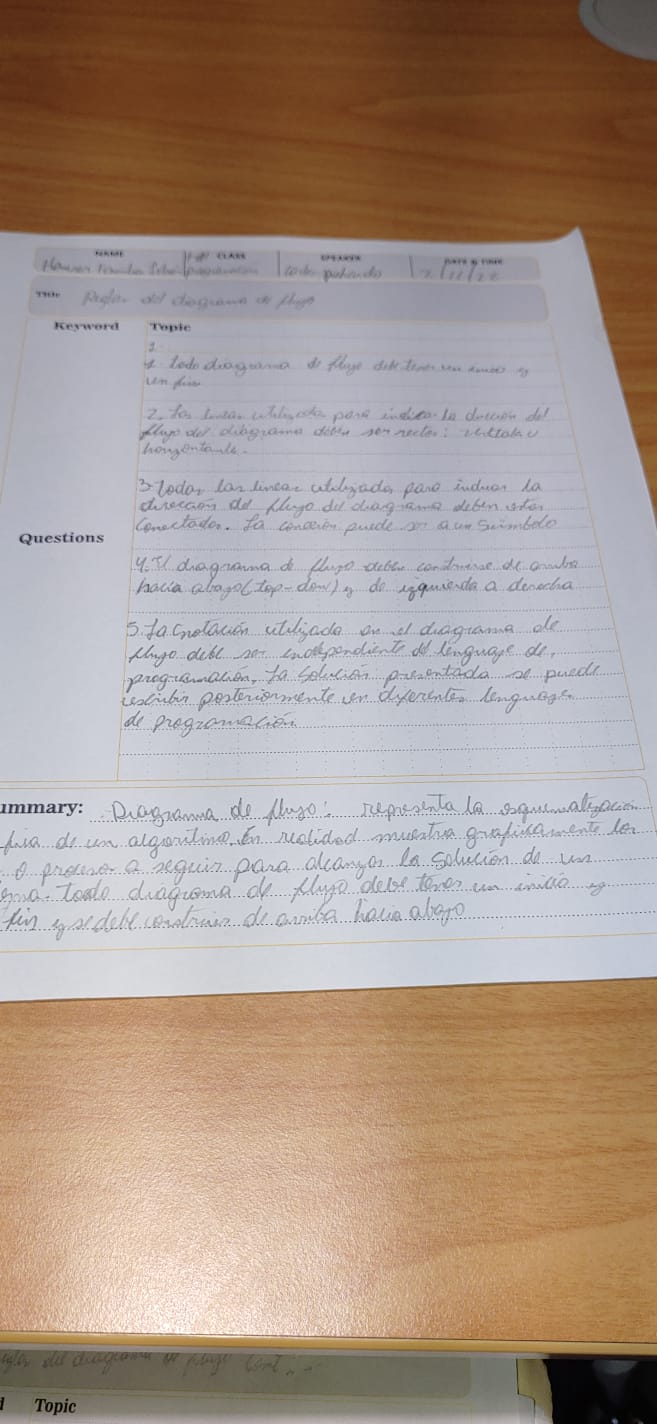 NAME CLASS SPEAKER DATE & TIME
2/11/22
Title Reglas del diagrama de flujo
Keyword Topic
1.
1. Todo diagrama de flujo debe tener un inicio y
un fin
2. Las lineas utilizadas para indicar la dirección del
flujo del diagrama deben ser rectas: verticales u
horizontales.
3. Todas las lineas utilizadas para indicar la
dirección del flujo del diagrama deben estar
conectadas. La conexión puede ser a un Suimbolo
Questions
4. El diagrama de flujo debe construirse de arriba
hacia abajo (top-dow) y de izquierda a derecha
5. La notación utilizada en el diagrama de
flujo debe ser independiente del lenguaje de
programación, la solución presentada se puede
escribir posteriormente en diferentes lenguajes
de programación
ummary: Diagrama de flujo: representa la esquematización
fica de un algoritmo. En realidad muestra graficamente los
o proceso a seguir para alcanzar la solución de un
ema. Todo diagrama de flujo debe tener un inicio y
fin y se debe construir de arriba hacia abajo
eglas del diagrama de flujo Cont...
d Topic